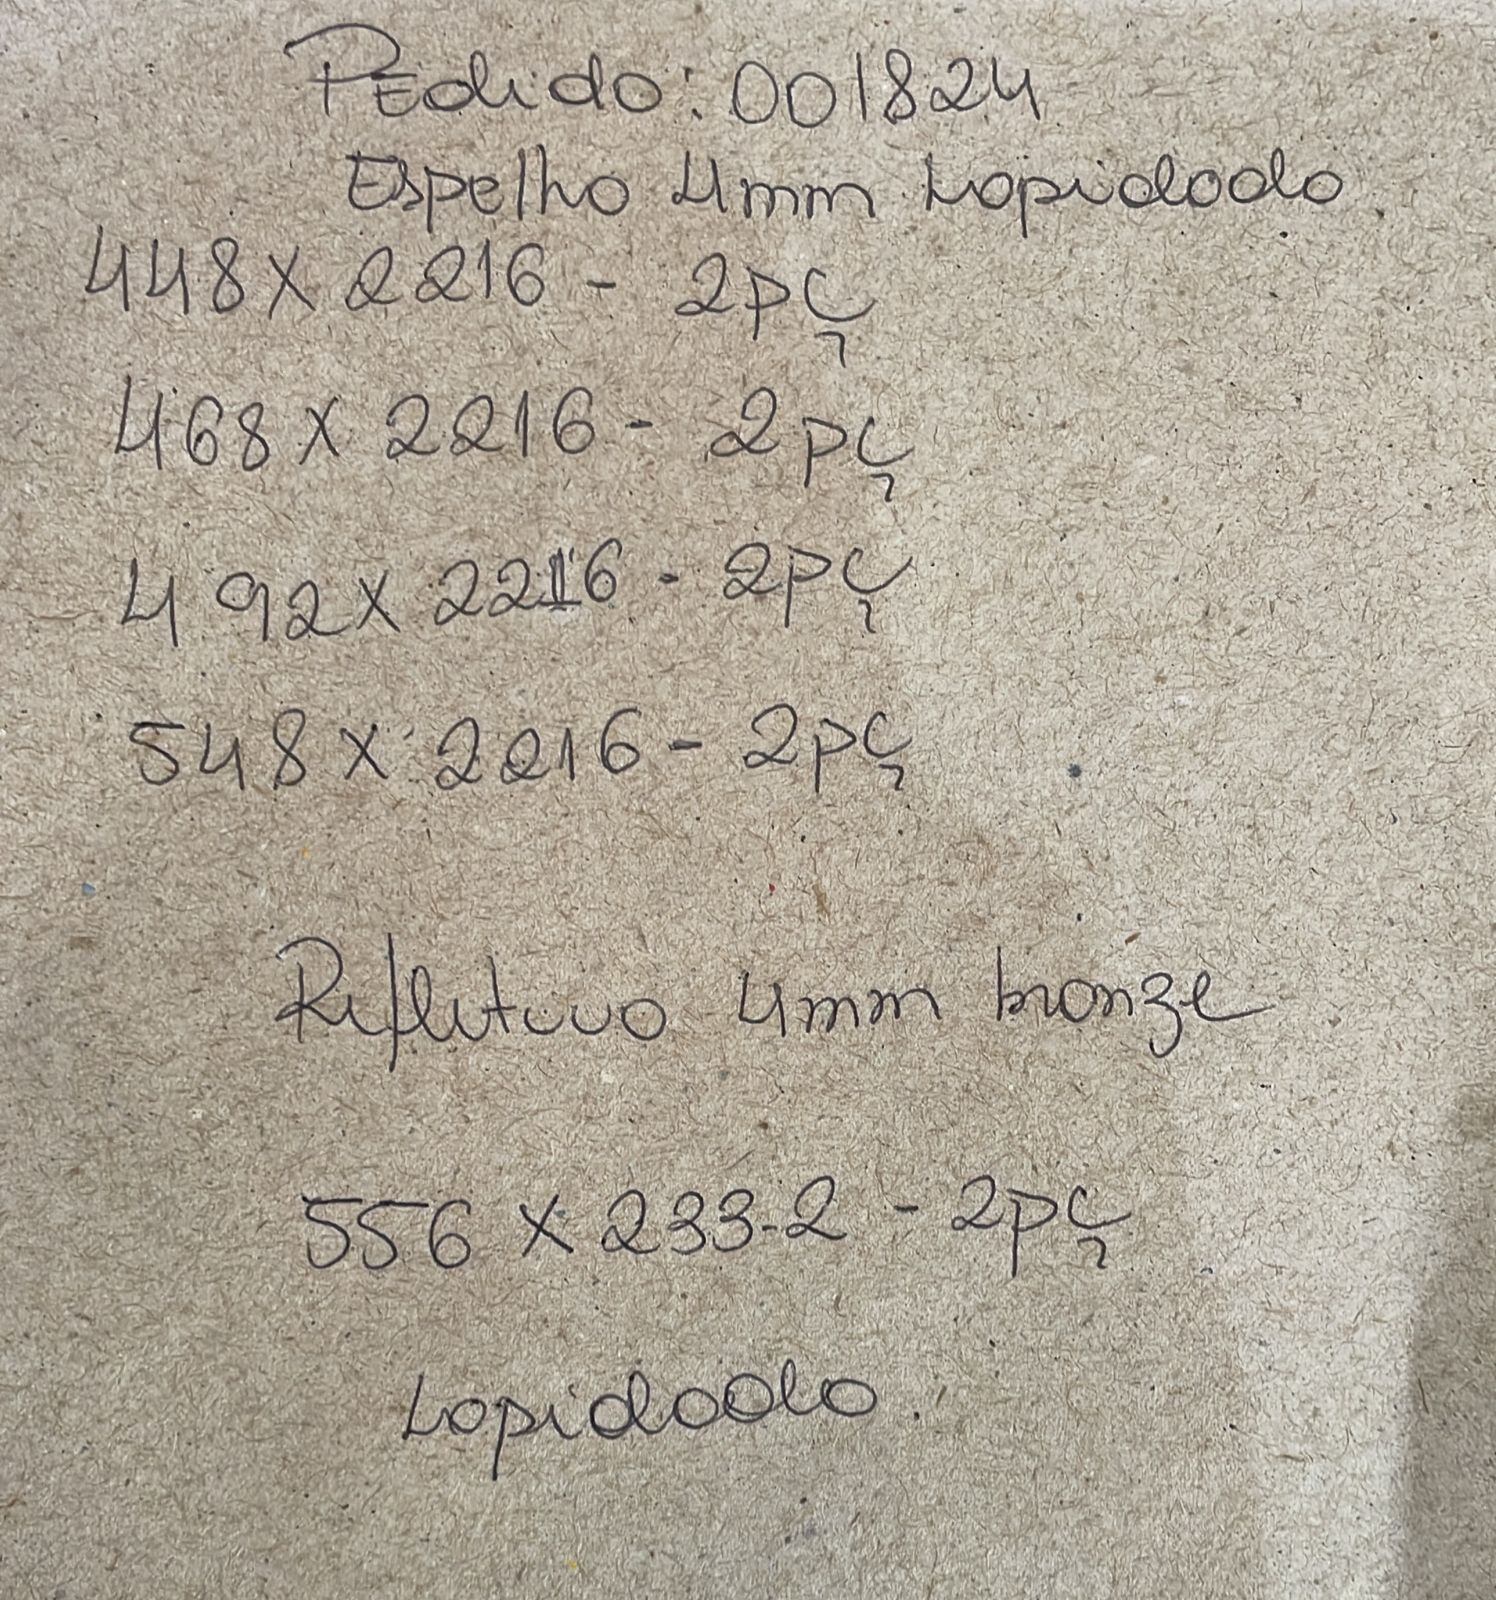 Pedido: 001824
Espelho 4mm Lapidado.
448 x 2216 - 2pç
468 x 2216 - 2pç
492 x 2216 - 2pç
548 x 2216 - 2pç
Refletivo 4mm bronze
556 x 233.2 - 2pç
Lapidado.